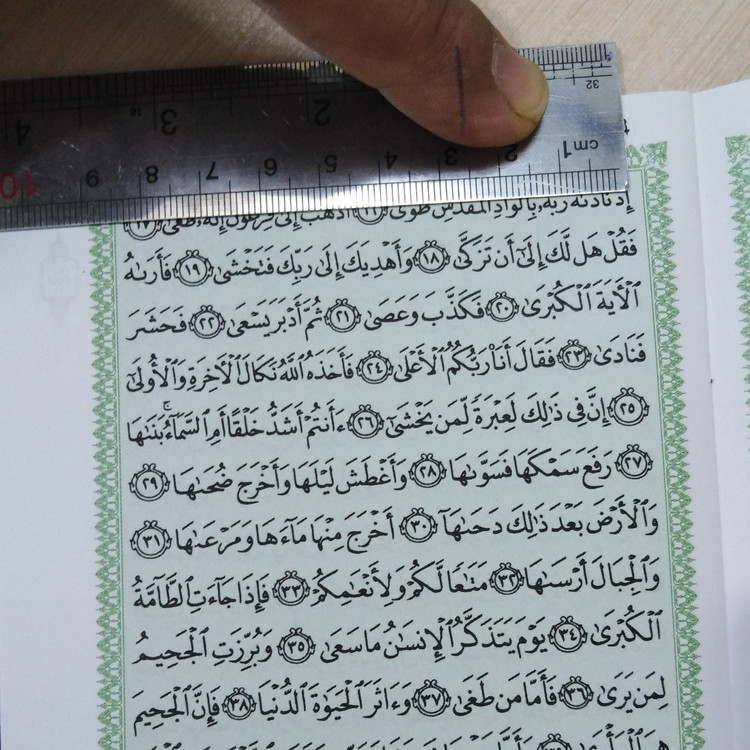 32
4 3 2
cm1 2 3 4 5 6 7 8 9 10
إِذْ نَادَىٰهُ رَبُّهُۥ بِٱلْوَادِ ٱلْمُقَدَّسِ طُوًى ١٦ ٱذْهَبْ إِلَىٰ فِرْعَوْنَ إِنَّهُۥ طَغَىٰ ١٧
فَقُلْ هَل لَّكَ إِلَىٰٓ أَن تَزَكَّىٰ ١٨ وَأَهْدِيَكَ إِلَىٰ رَبِّكَ فَتَخْشَىٰ ١٩ فَأَرَىٰهُ
ٱلْـَٔايَةَ ٱلْكُبْرَىٰ ٢٠ فَكَذَّبَ وَعَصَىٰ ٢١ ثُمَّ أَدْبَرَ يَسْعَىٰ ٢٢ فَحَشَرَ
فَنَادَىٰ ٢٣ فَقَالَ أَنَا۠ رَبُّكُمُ ٱلْأَعْلَىٰ ٢٤ فَأَخَذَهُ ٱللَّهُ نَكَالَ ٱلْـَٔاخِرَةِ وَٱلْأُولَىٰٓ
٢٥ إِنَّ فِى ذَٰلِكَ لَعِبْرَةً لِّمَن يَخْشَىٰٓ ٢٦ ءَأَنتُمْ أَشَدُّ خَلْقًا أَمِ ٱلسَّمَآءُ ۚ بَنَىٰهَا
٢٧ رَفَعَ سَمْكَهَا فَسَوَّىٰهَا ٢٨ وَأَغْطَشَ لَيْلَهَا وَأَخْرَجَ ضُحَىٰهَا ٢٩
وَٱلْأَرْضَ بَعْدَ ذَٰلِكَ دَحَىٰهَآ ٣٠ أَخْرَجَ مِنْهَا مَآءَهَا وَمَرْعَىٰهَا ٣١
وَٱلْجِبَالَ أَرْسَىٰهَا ٣٢ مَتَٰعًا لَّكُمْ وَلِأَنْعَٰمِكُمْ ٣٣ فَإِذَا جَآءَتِ ٱلطَّآمَّةُ
ٱلْكُبْرَىٰ ٣٤ يَوْمَ يَتَذَكَّرُ ٱلْإِنسَٰنُ مَا سَعَىٰ ٣٥ وَبُرِّزَتِ ٱلْجَحِيمُ
لِمَن يَرَىٰ ٣٦ فَأَمَّا مَن طَغَىٰ ٣٧ وَءَاثَرَ ٱلْحَيَوٰةَ ٱلدُّنْيَا ٣٨ فَإِنَّ ٱلْجَحِيمَ